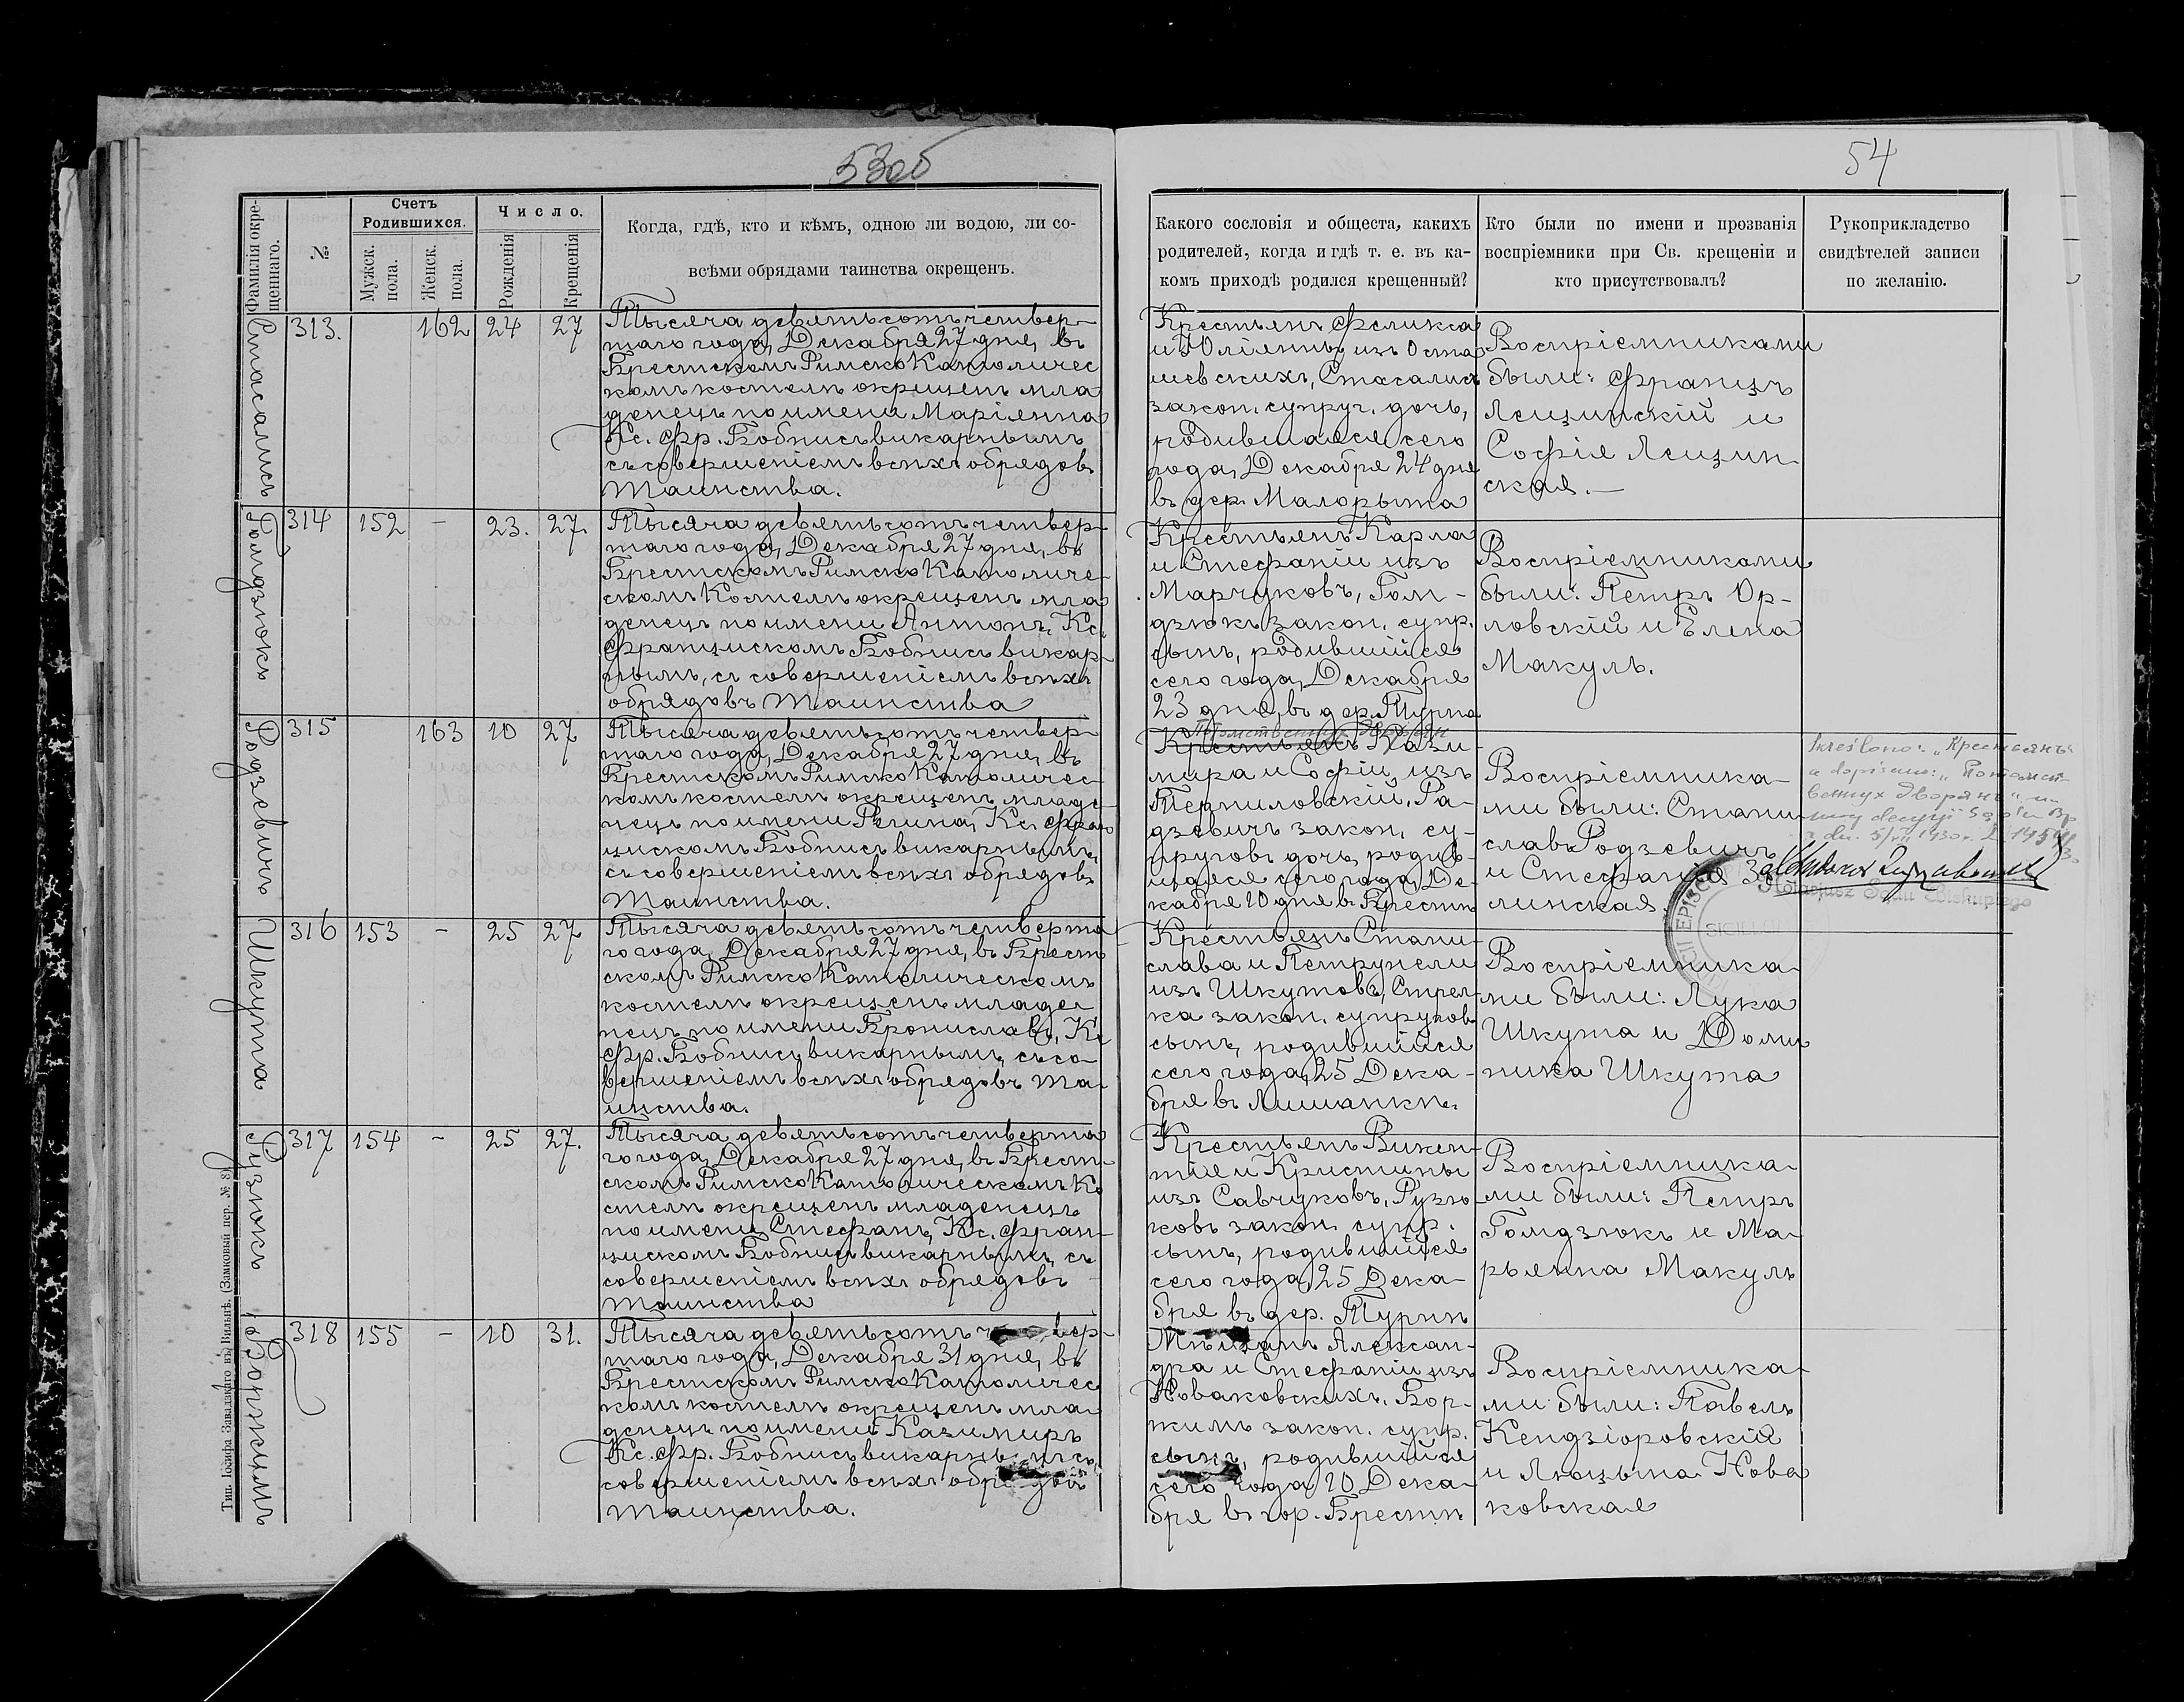 53об
54
Фамилія окре-
щеннаго.
№
Счетъ
Родившихся.
Мужск.
пола.
Женск.
пола.
Число.
Рожденія
Крещенія
Когда, гдѣ, кто и кѣмъ, одною ли водою, ли со-
всѣми обрядами таинства окрещенъ.
Какого сословія и общеста, какихъ
родителей, когда и гдѣ т. е. въ ка-
комъ приходѣ родился крещенный?
Кто были по имени и прозванія
воспріемники при Св. крещеніи и
кто присутствовалъ?
Рукоприкладство
свидѣтелей записи
по желанію.
313. 162 24 27
Тысяча девятьсотъ четвер-
таго года, Декабря 27 дня, въ
Брестскомъ Римско Католичес
комъ костелѣ окрещенъ мла
денецъ по имени Маріянна
Кс. Фр. Бобнисъ викарнымъ
съ совершеніемъ всѣхъ обрядовъ
Таинства.
Крестьянъ Феликса
и Юліянны изъ Оста
шевскихъ,
закон. супруг. дочь,
родившаяся сего
года, Декабря 24 дня
въ дер. Малорыта
Воспріемниками
были: Францъ
Лещинскій и
Софія Лещин
ская.
Голодзюкъ
314 152 - 23. 27.
Тысяча девятьсотъ четвер-
таго года, Декабря 27 дня, въ
Брестскомъ Римско Католиче-
скомъ Костелѣ окрещенъ мла
денецъ по имени Антонъ, Кс.
Францискомъ Бобнисъ викар-
нымъ, съ совершеніемъ всѣхъ
обрядовъ Таинства
Крестьянъ Карла
и Стефаніи изъ
Марчуковъ, Гом-
дзюкъ закон. супр.
сынъ, родившійся
сего года, Декабря
23 дня, въ дер. Турна
Воспріемниками
были: Петръ Ор-
ловскій и Елена
Макуль.
Родзевичъ
315 163 10 27
Тысяча девятьсотъ четвер-
таго года, Декабря 27 дня, въ
Брестскомъ Римско Католичес-
комъ костелѣ окрещенъ младе-
нецъ по имени Регина, Кс. Фран
цискомъ Бобнисъ викарнымъ,
съ совершеніемъ всѣхъ обрядовъ
Таинства.
Потомственныхъ Дворянъ
Крестьянъ Кази-
мира и Софіи, изъ
Ра-
дзевичъ закон. су-
пруговъ дочь, родив-
шаяся сего года, Де-
кабря 10 дня въ Брестѣ
Воспріемника-
ми были: Стани
славъ Родзевичъ
и Стефанія За
линская.
Skreślono: „Крестьянъ"
a dopisano: „Потомст-
венных Дворянъ" na
mocy decyzji Sądu Bp
z dn. 5/VII 1930 r.
Notarjusz Sądu Biskupiego
SIGILLUM
EPISCO
Шкута
316 153 - 25 27
Тысяча девятьсотъ четверта
го года, Декабря 27 дня, въ Брест
скомъ Римско Католическомъ
костелѣ окрещенъ младе
нецъ по имени Брониславъ, Кс
Фр. Бобнисъ викарнымъ, съ со-
вершеніемъ всѣхъ обрядовъ Та-
инства.
Крестьянъ Стани-
слава и Петрунели
изъ Шкутовъ, Стрел-
ка закон. супруговъ
сынъ, родившійся
сего года, 25 Дека-
бря въ
Воспріемника-
ми были: Лука
Шкута и Доми
ника Шкута
Рузюкъ
317 154 - 25 27.
Тысяча девятьсотъ четверта
го года, Декабря 27 дня, въ Брест-
скомъ Римско Католическомъ Ко
стелѣ окрещенъ младенецъ
по имени Стефанъ, Кс. Фран-
цискомъ Бобнисъ викарнымъ, съ
совершеніемъ всѣхъ обрядовъ
Таинства
Крестьянъ Викен-
тія и Кристины
изъ Савчуковъ, Рузю
ковъ закон. супр.
сынъ, родившійся
сего года, 25 Дека-
бря въ дер. Турнѣ
Воспріемника-
ми были: Петръ
Гомдзюкъ и Ма-
рьянна Макуль
Боржимъ
318 155 - 10 31.
Тысяча девятьсотъ четвер-
таго года, Декабря 31 дня, въ
Брестскомъ Римско Католичес
комъ костелѣ окрещенъ мла-
денецъ по имени Казимиръ
Кс. Фр. Бобнисъ викарнымъ съ
совершеніемъ всѣхъ обрядовъ
Таинства.
Мѣщанъ Алексан-
дра и Стефаніи изъ
Новаковскихъ, Бор-
жимъ закон. супр.
сынъ, родившійся
сего года 10 Дека-
бря въ гор. Брестѣ
Воспріемника-
ми были: Павелъ
Кендзіоровскій
и Люцына Нова
ковская
Тип. Іосифа Завадзкаго въ Вильнѣ. (Замковый пер. № 8)